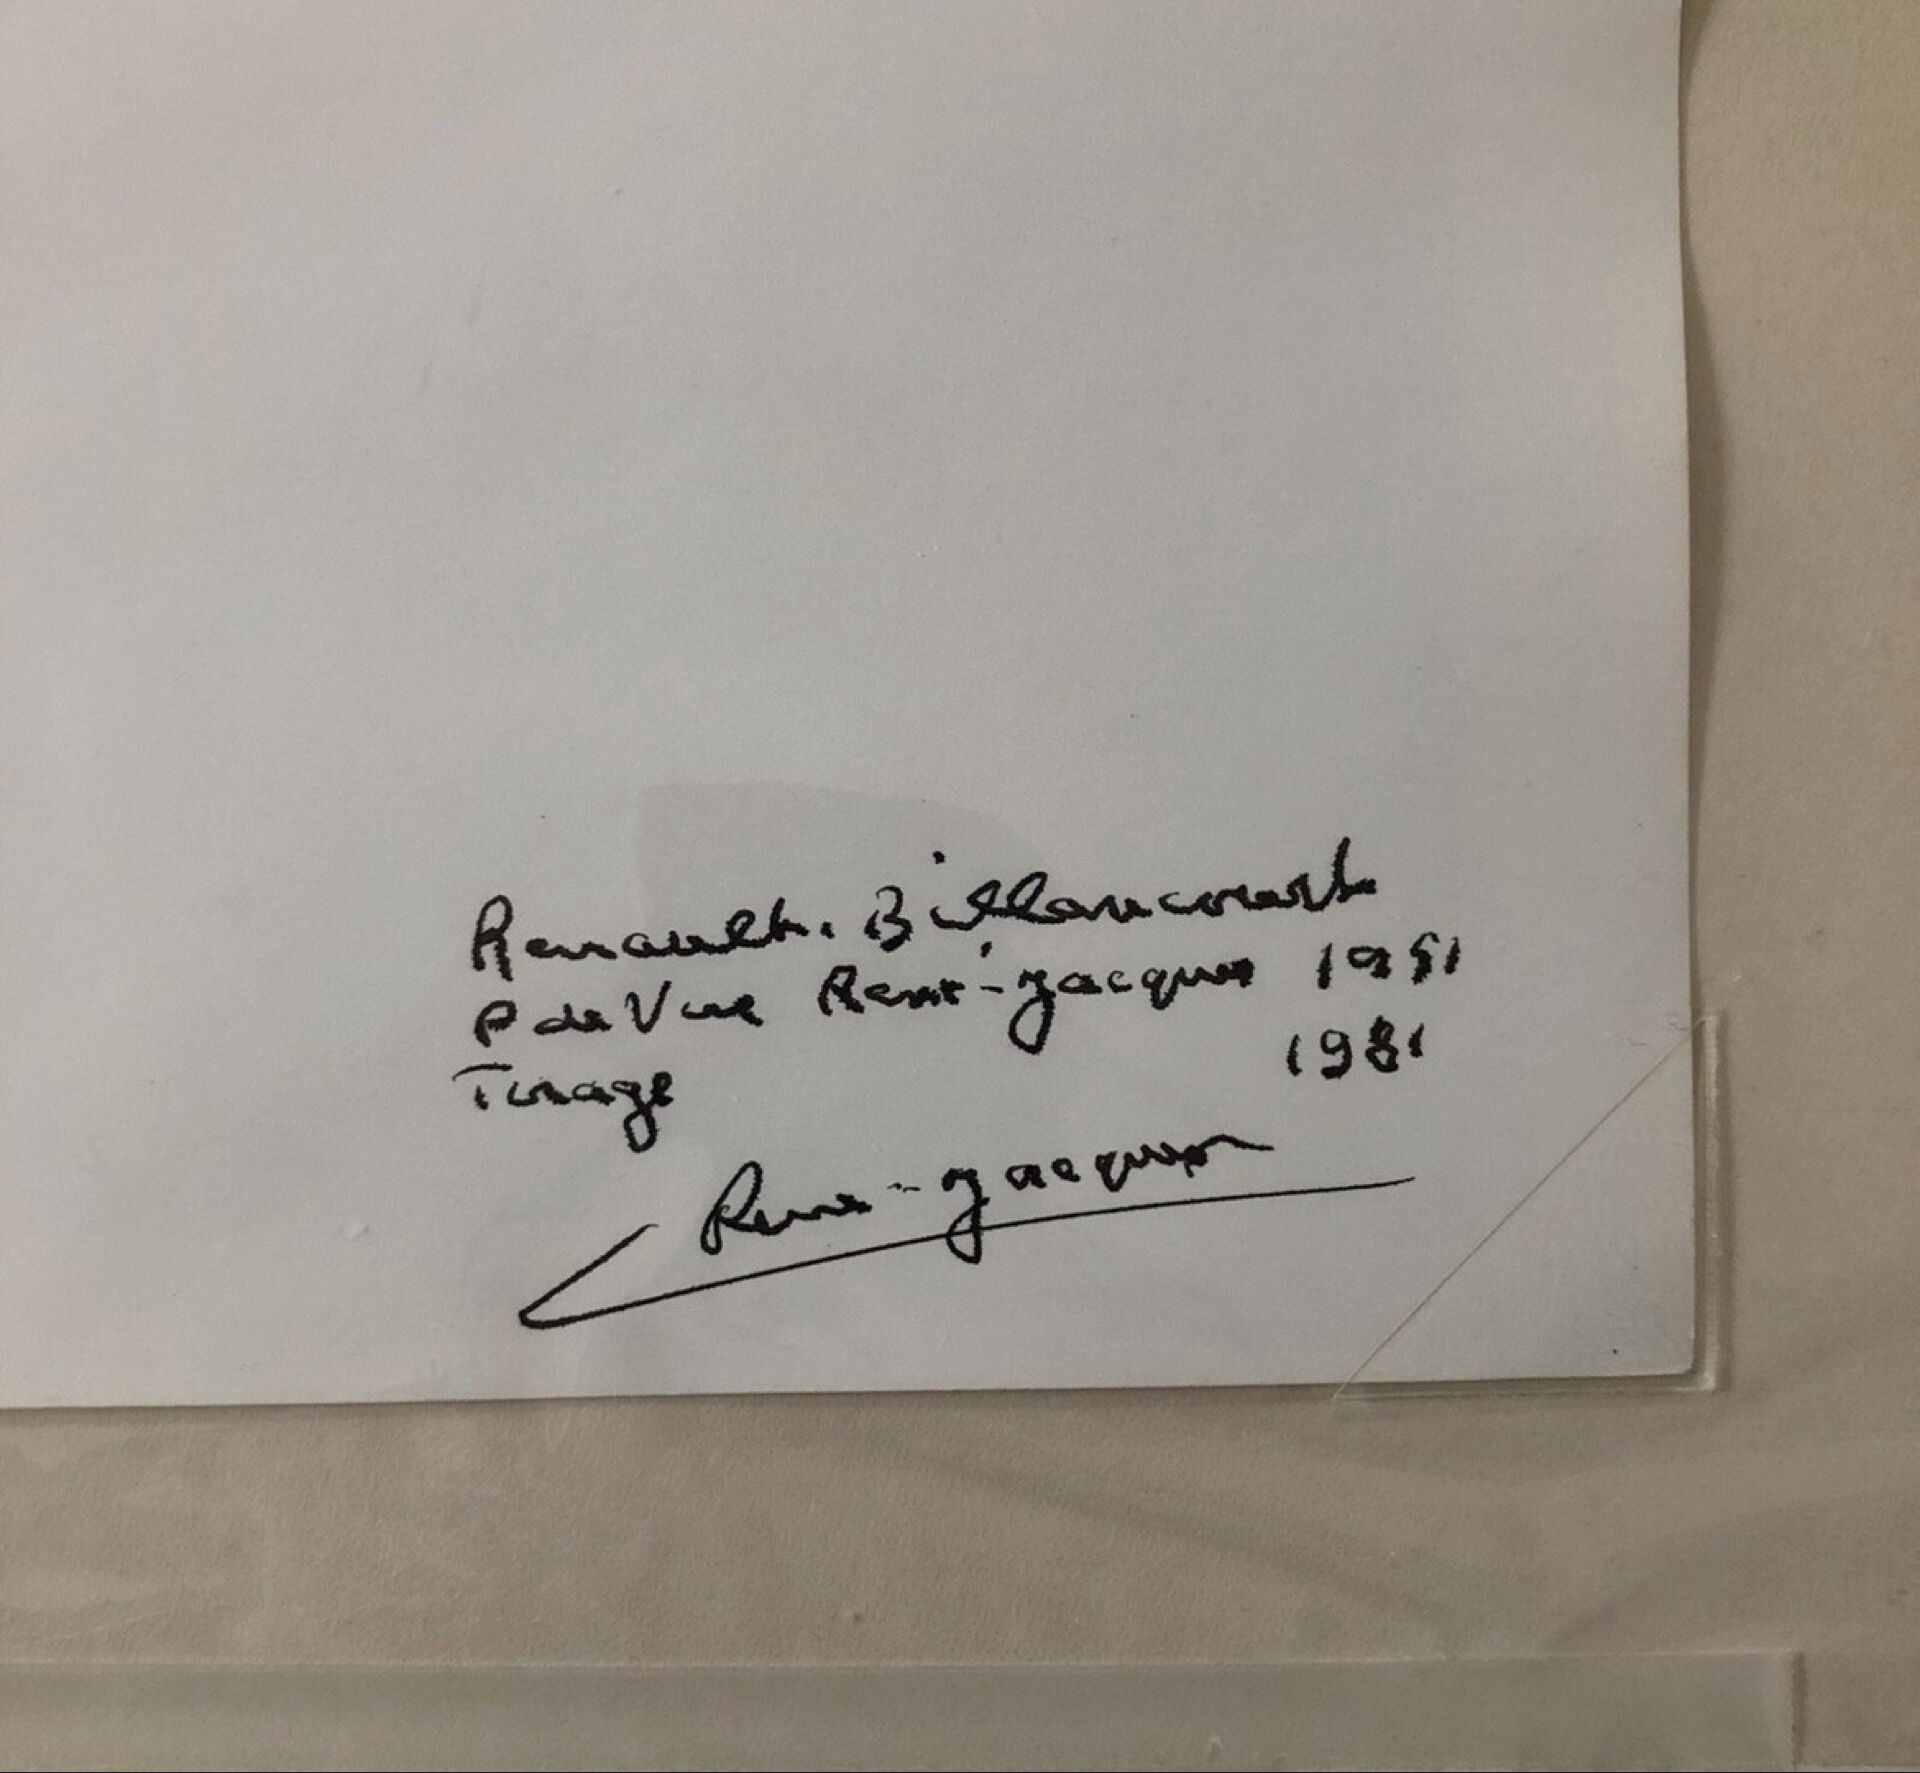 Renault. Billancourt
P de Vue René-Jacques 1951
Tirage 1981
René-Jacques